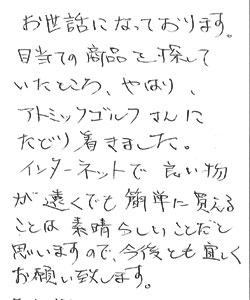 お世話になっております。
目当ての商品を探して
いたところ、やはり、
アトミックゴルフさんに
たどり着きました。
インターネットで良い物
が遠くでも簡単に買える
ことは素晴らしいことだと
思いますので、今後とも宜しく
お願い致します。